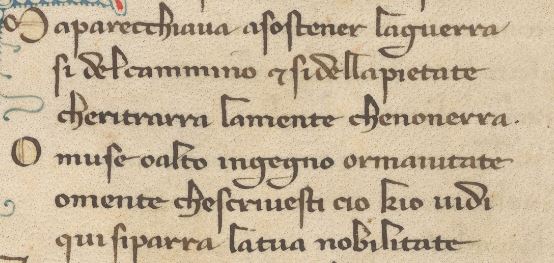 M aparecchiaua asostener laguerra
si delcammino ⁊ sidellapietate
cheritrarra lamente chenonerra.
O muse oalto ingegno ormaiutate
omente chescriuesti cio kio uidi
qui siparra latua nobilitate